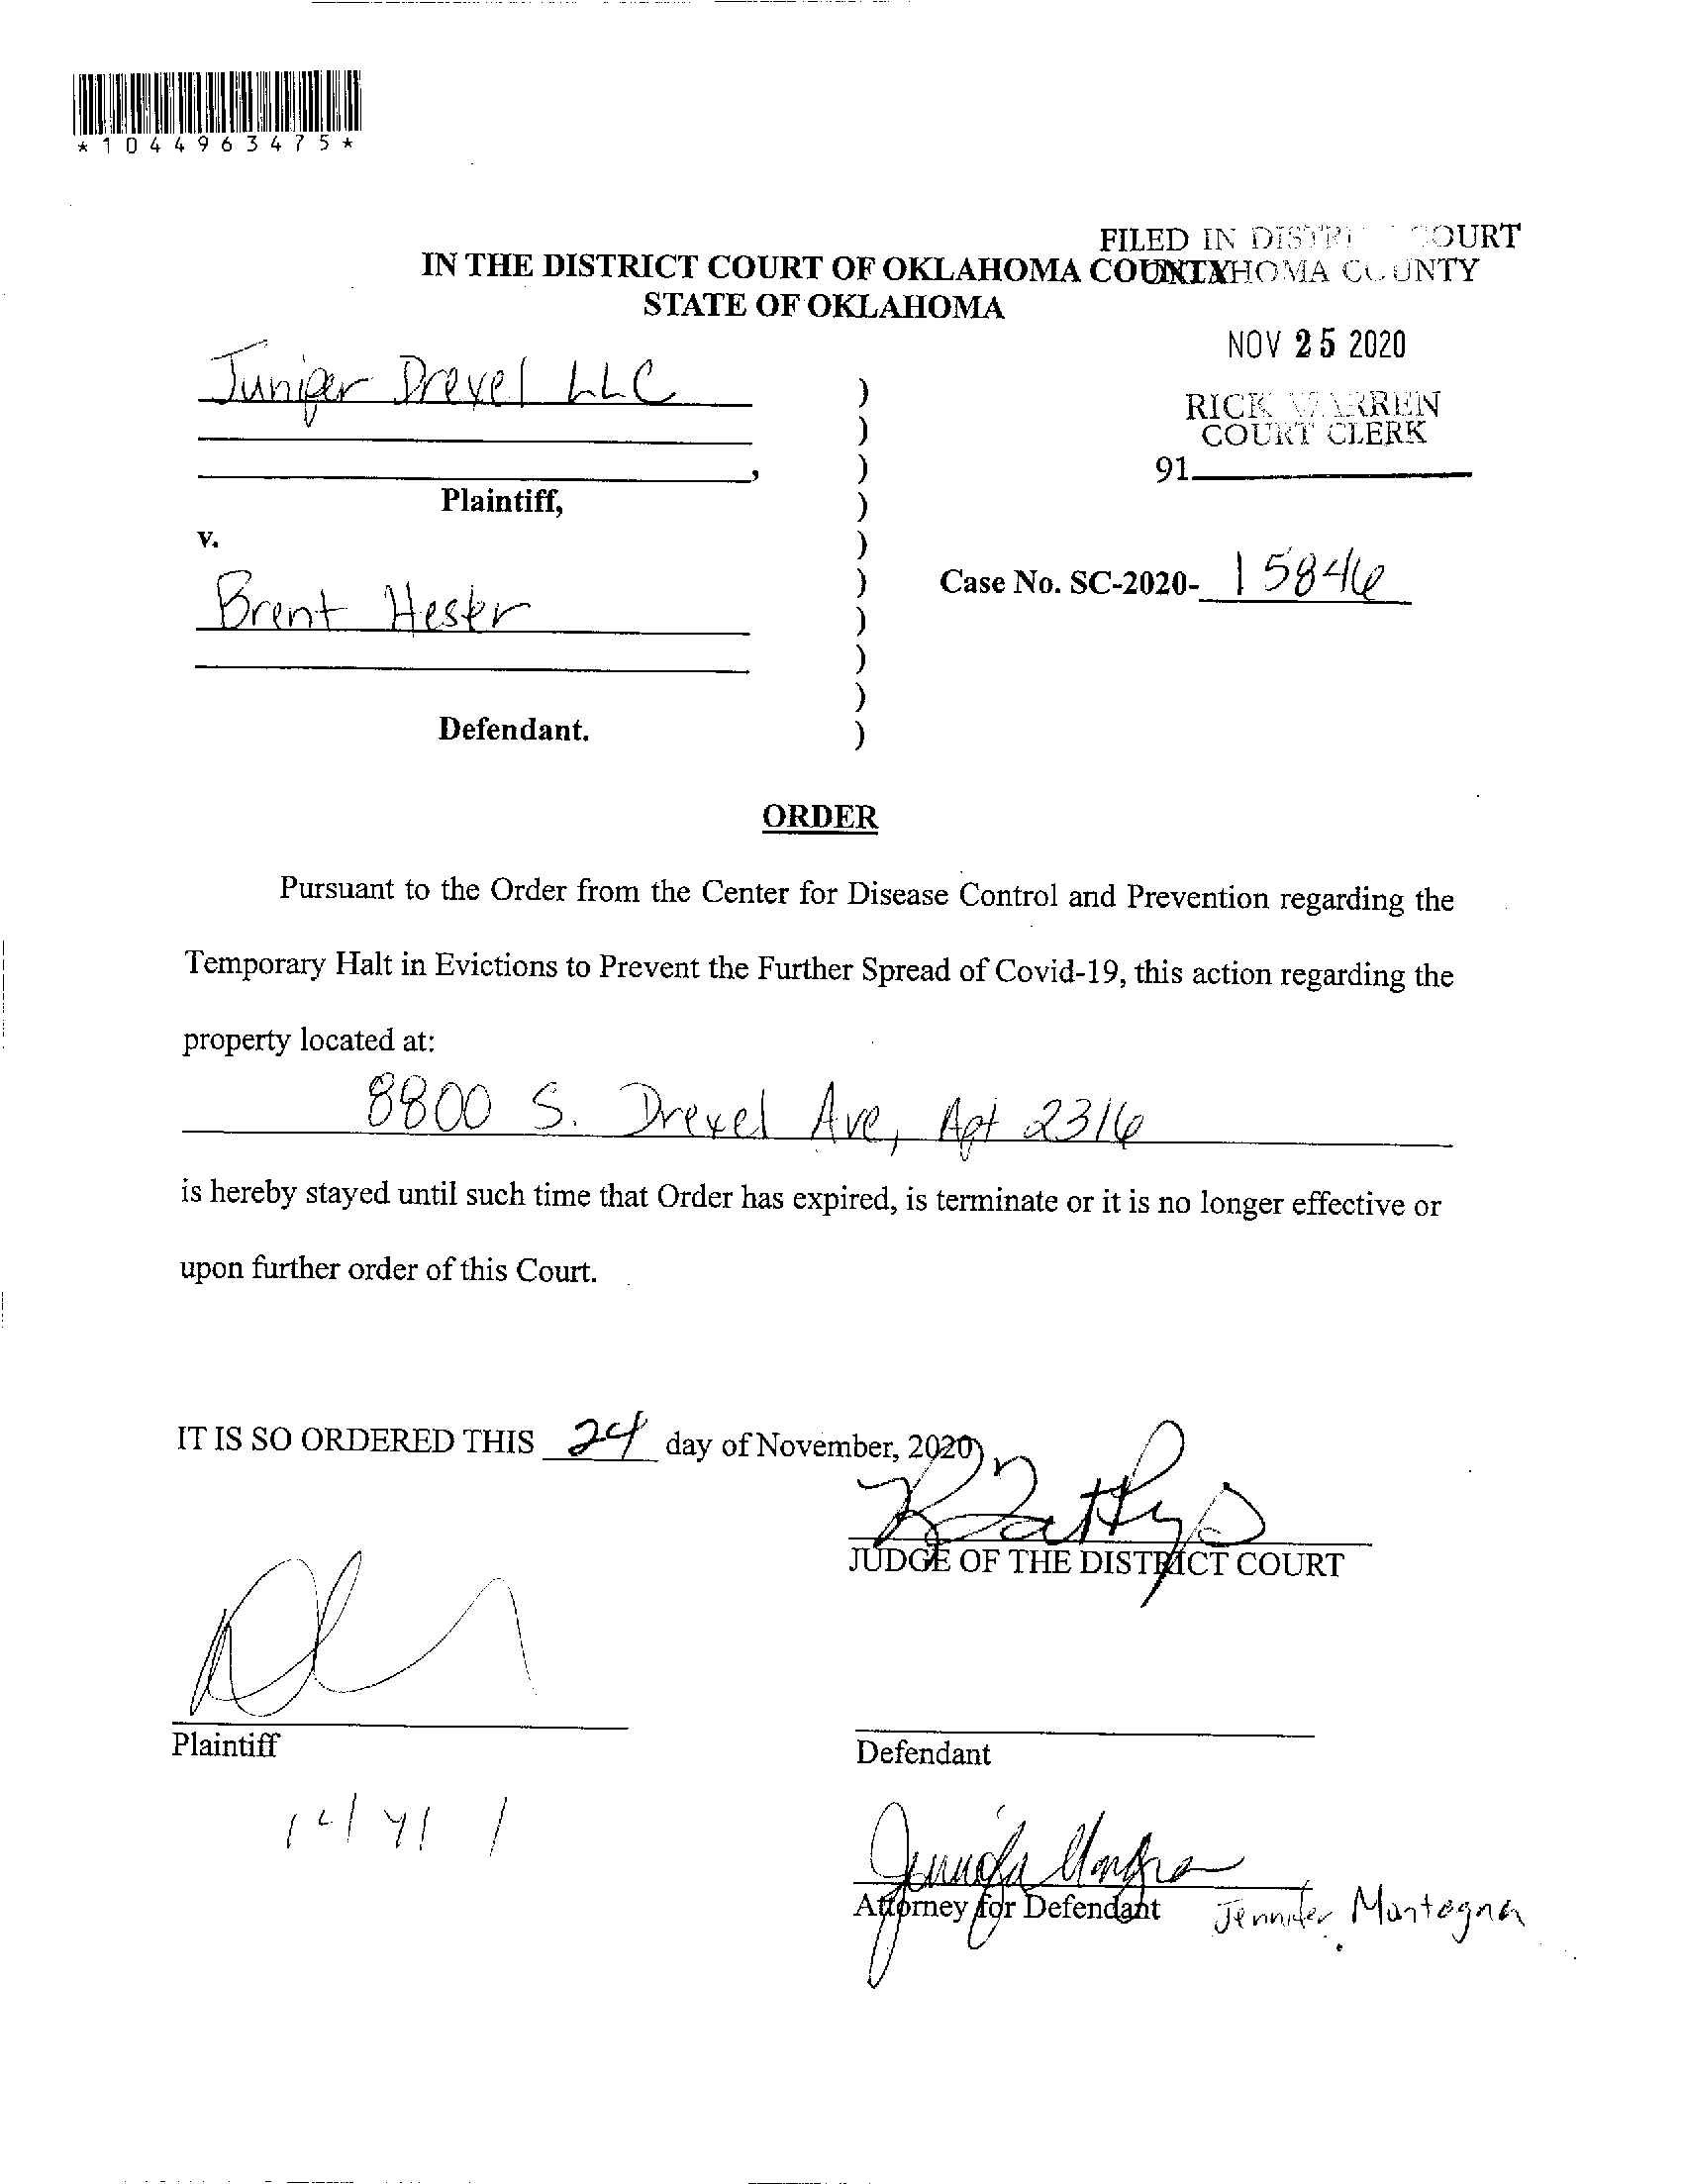 *1044963475*
FILED IN DISTRI COURT
IN THE DISTRICT COURT OF OKLAHOMA COUNTY
HOMA COUNTY
STATE OF OKLAHOMA
NOV 25 2020
Juniper Drexel LLC )
RICK WARREN
)
COURT CLERK
, )
91
Plaintiff, )
v. )
) Case No. SC-2020- 15846
Brent Hester )
)
)
Defendant. )
ORDER
Pursuant to the Order from the Center for Disease Control and Prevention regarding the
Temporary Halt in Evictions to Prevent the Further Spread of Covid-19, this action regarding the
property located at:
8800 S. Drexel Ave, Apt 2316
is hereby stayed until such time that Order has expired, is terminate or it is no longer effective or
upon further order of this Court.
IT IS SO ORDERED THIS 24 day of November, 2020
JUDGE OF THE DISTRICT COURT
Plaintiff
Defendant
Attorney for Defendant Jennifer Montagna